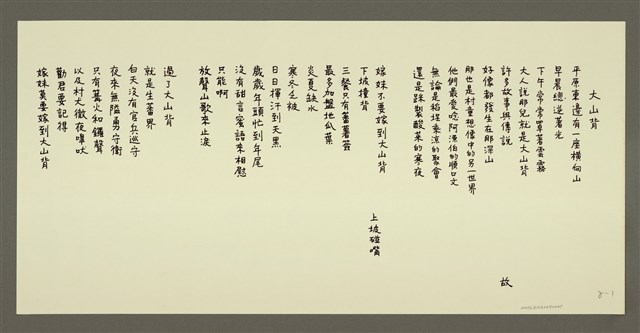 大山背
平原東邊有一座橫向山
早晨總逆著光
下午常常罩著雲霧
大人說那兒就是大山背
許多故事與傳說 故
好像都發生在那深山
那也是村童想像中的另一世界
他們最愛唸阿漢伯的順口文
無論是稻埕乘涼的聚會
還是踩製酸菜的寒夜
嫁妹不要嫁到大山背
下坡撞背 上坡碰嘴
三餐只有蕃薯簽
最多加盤地瓜葉
炎夏缺水
寒冬乏被
日日揮汗到天黑
歲歲年頭忙到年尾
沒有甜言蜜語來相慰
只能啊
放聲山歌來止淚
過了大山背
就是生蕃界
白天沒有官兵巡守
夜來無隘勇守衛
只有篝火和鑼聲
以及村犬徹夜嗥吠
勸君要記得
嫁妹莫要嫁到大山背
8-1